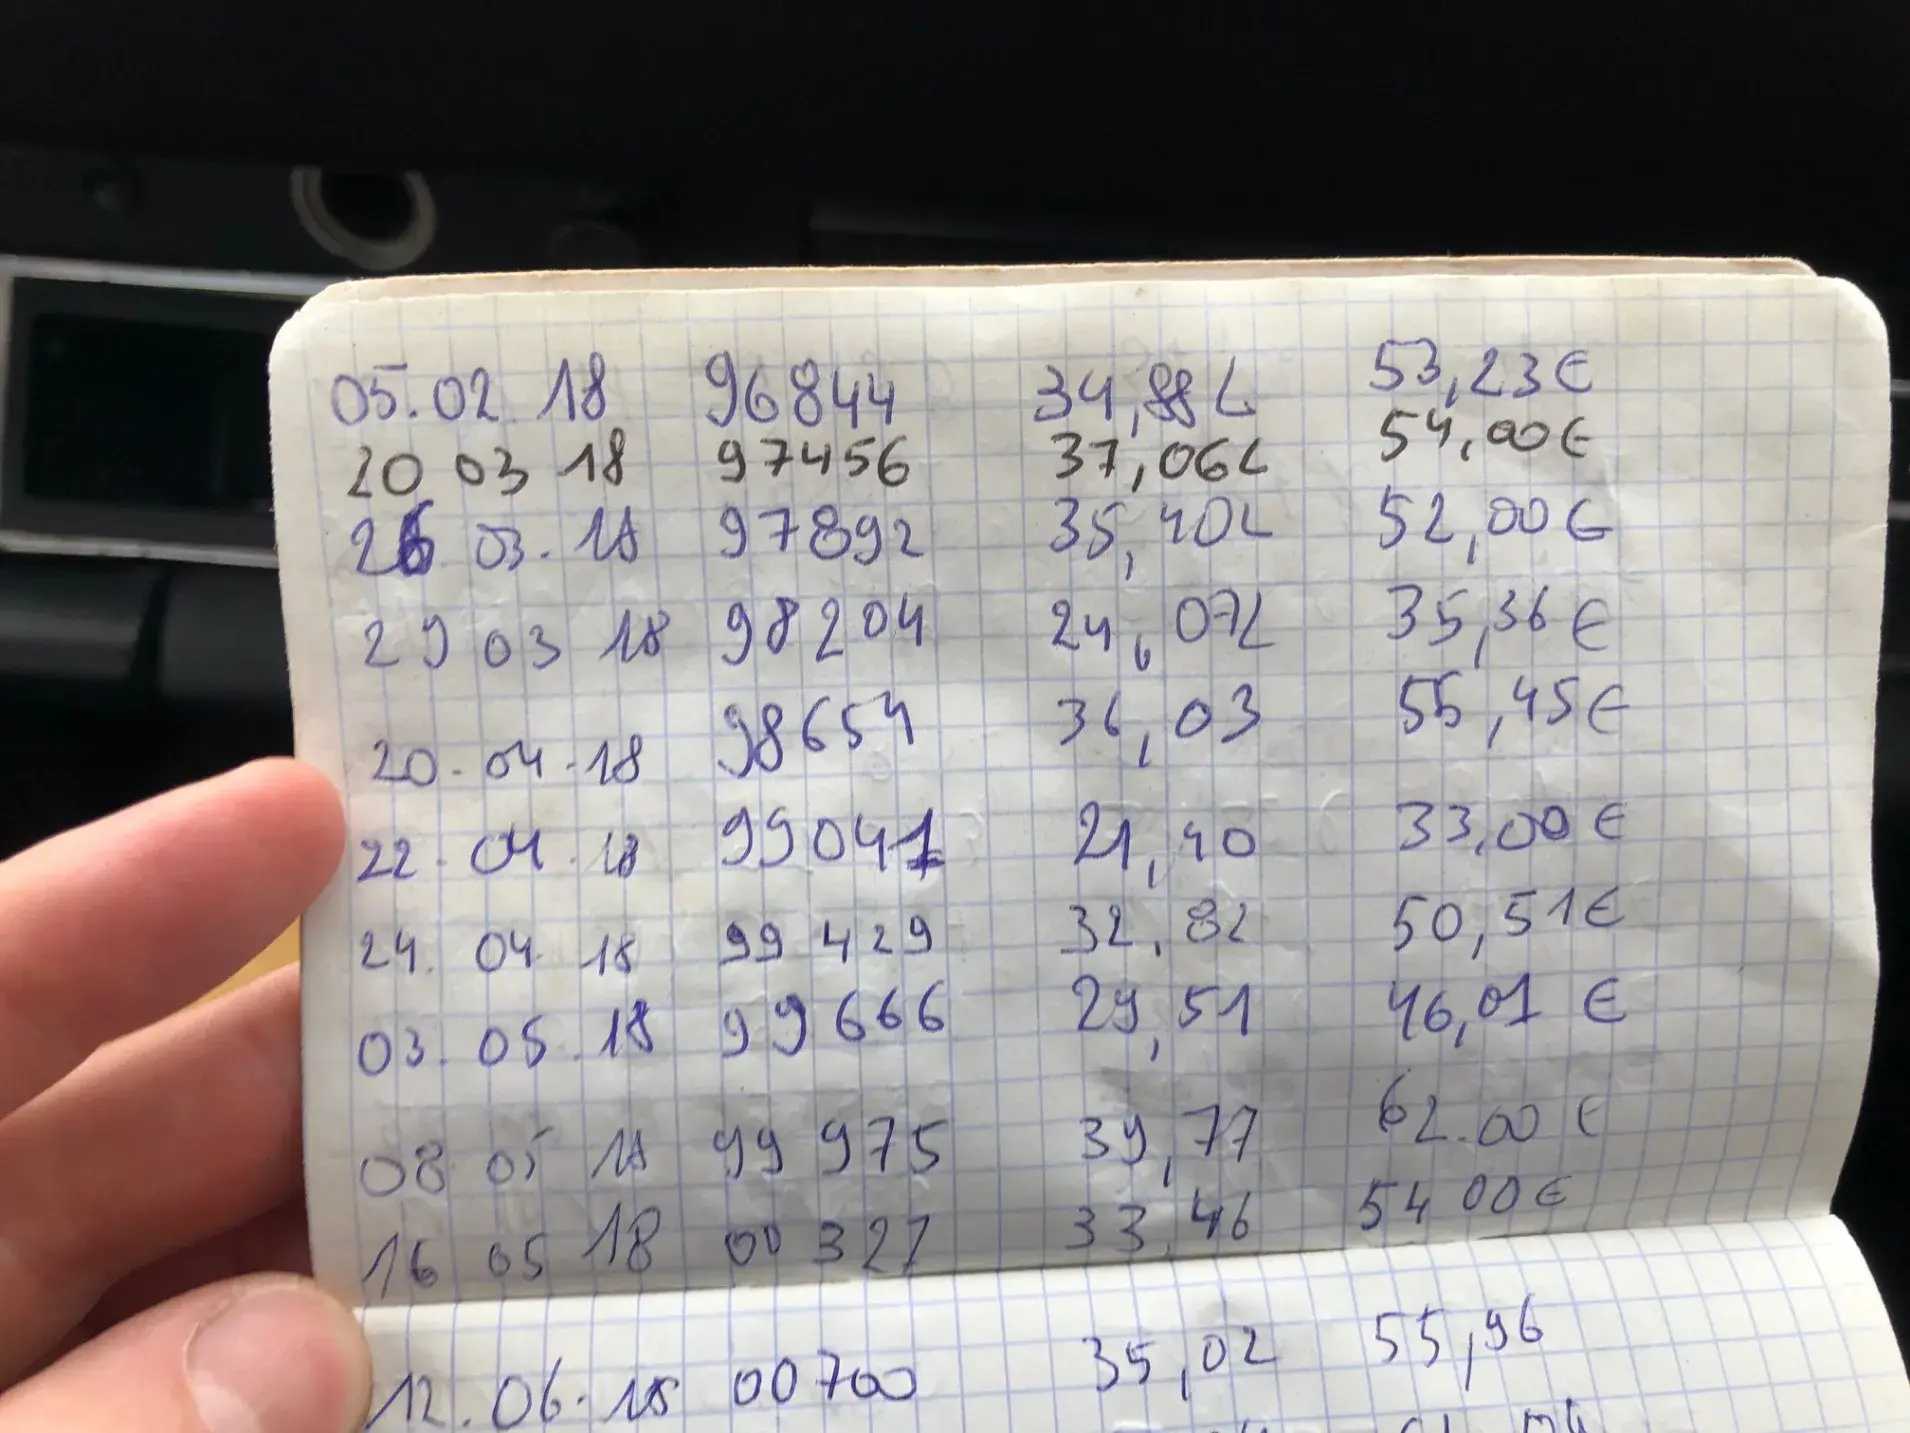 05.02.18 96844 34,88L 53,23€
20 03 18 97456 37,06L 54,00€
26 03.18 97892 35,40L 52,00€
29 03 18 98204 24,07L 35,36€
20.04.18 98654 36,03 55,45€
22.04.18 99041 21,40 33,00€
24.04.18 99429 32,82 50,51€
03.05.18 99666 29,51 46,01 €
08 05 18 99975 39,77 62.00 €
16 05 18 00327 33,46 54 00€
12.06.18 00700 35,02 55,96